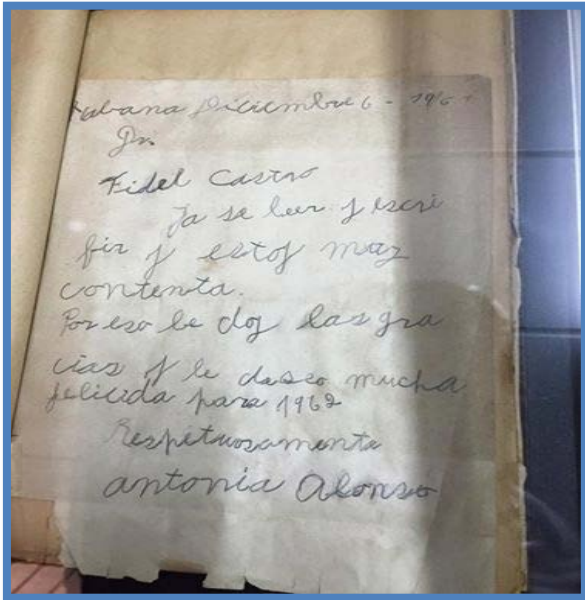 Habana Diciembre 6 - 1961
Dr.
Fidel Castro
Ya se leer y escri
bir y estoy muy
contenta.
Por eso le doy las gra
cias y le daseo mucha
felicida para 1962
Respetuosamente
antonia Alonso